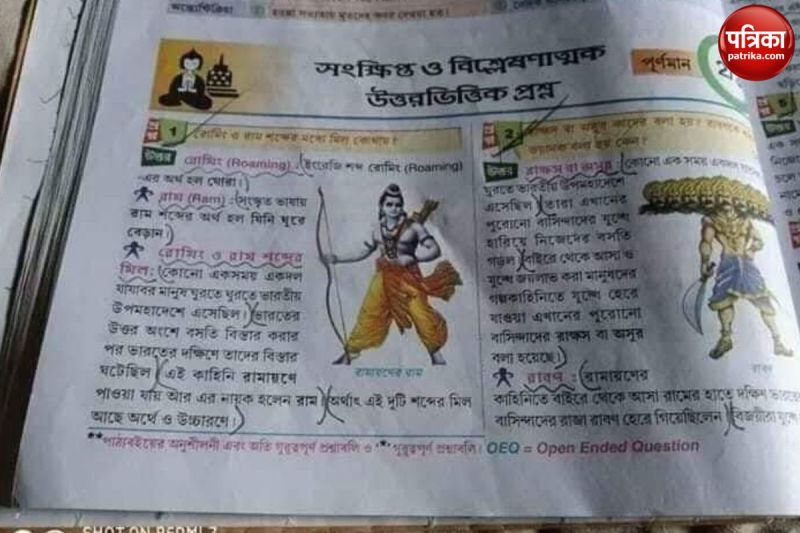 অন্ত্যেষ্টিক্রিয়া
হরপ্পা সভ্যতায় মৃতদের কবর দেওয়া হত।
পত্রিকা
patrika.com
সংক্ষিপ্ত ও বিশ্লেষণাত্মক
উত্তরভিত্তিক প্রশ্ন
পূর্ণমান
1 রোমিং ও রাম শব্দের মধ্যে মিল কোথায়?
উত্তর রোমিং (Roaming) : ইংরেজি শব্দ রোমিং (Roaming)
-এর অর্থ হল ঘোরা।
রাম (Ram) : সংস্কৃত ভাষায়
রাম শব্দের অর্থ হল যিনি ঘুরে
বেড়ান।
রোমিং ও রাম শব্দের
মিল: কোনো একসময় একদল
যাযাবর মানুষ ঘুরতে ঘুরতে ভারতীয়
উপমহাদেশে এসেছিল। ভারতের
উত্তর অংশে বসতি বিস্তার করার
পর ভারতের দক্ষিণে তাদের বিস্তার
ঘটেছিল। এই কাহিনি রামায়ণে
পাওয়া যায় আর এর নায়ক হলেন রাম। অর্থাৎ এই দুটি শব্দের মিল
আছে অর্থে ও উচ্চারণে।
রামায়ণের রাম
2 রাক্ষস বা অসুর কাদের বলা হয়? রাবণকে
ভয়ানক বলা হয় কেন?
উত্তর রাক্ষস বা অসুর : কোনো এক সময় একদল
ঘুরতে ভারতীয় উপমহাদেশে
এসেছিল। তারা এখানের
পুরোনো বাসিন্দাদের যুদ্ধে
হারিয়ে নিজেদের বসতি
গড়ল। বাইরে থেকে আসা ও
যুদ্ধে জয়লাভ করা মানুষদের
গল্পকাহিনিতে যুদ্ধে হেরে
যাওয়া এখানের পুরোনো
বাসিন্দাদের রাক্ষস বা অসুর
বলা হয়েছে।
রাবণ : রামায়ণের
কাহিনিতে বাইরে থেকে আসা রামের হাতে দক্ষিণ ভারতের
বাসিন্দাদের রাজা রাবণ হেরে গিয়েছিলেন। বিজয়ীরা যুদ্ধে
রাবণ
**পাঠ্যবইয়ের অনুশীলনী এবং অতি গুরুত্বপূর্ণ প্রশ্নাবলি ও '*' গুরুত্বপূর্ণ প্রশ্নাবলি। OEQ = Open Ended Question
SHOT ON REDMI 7